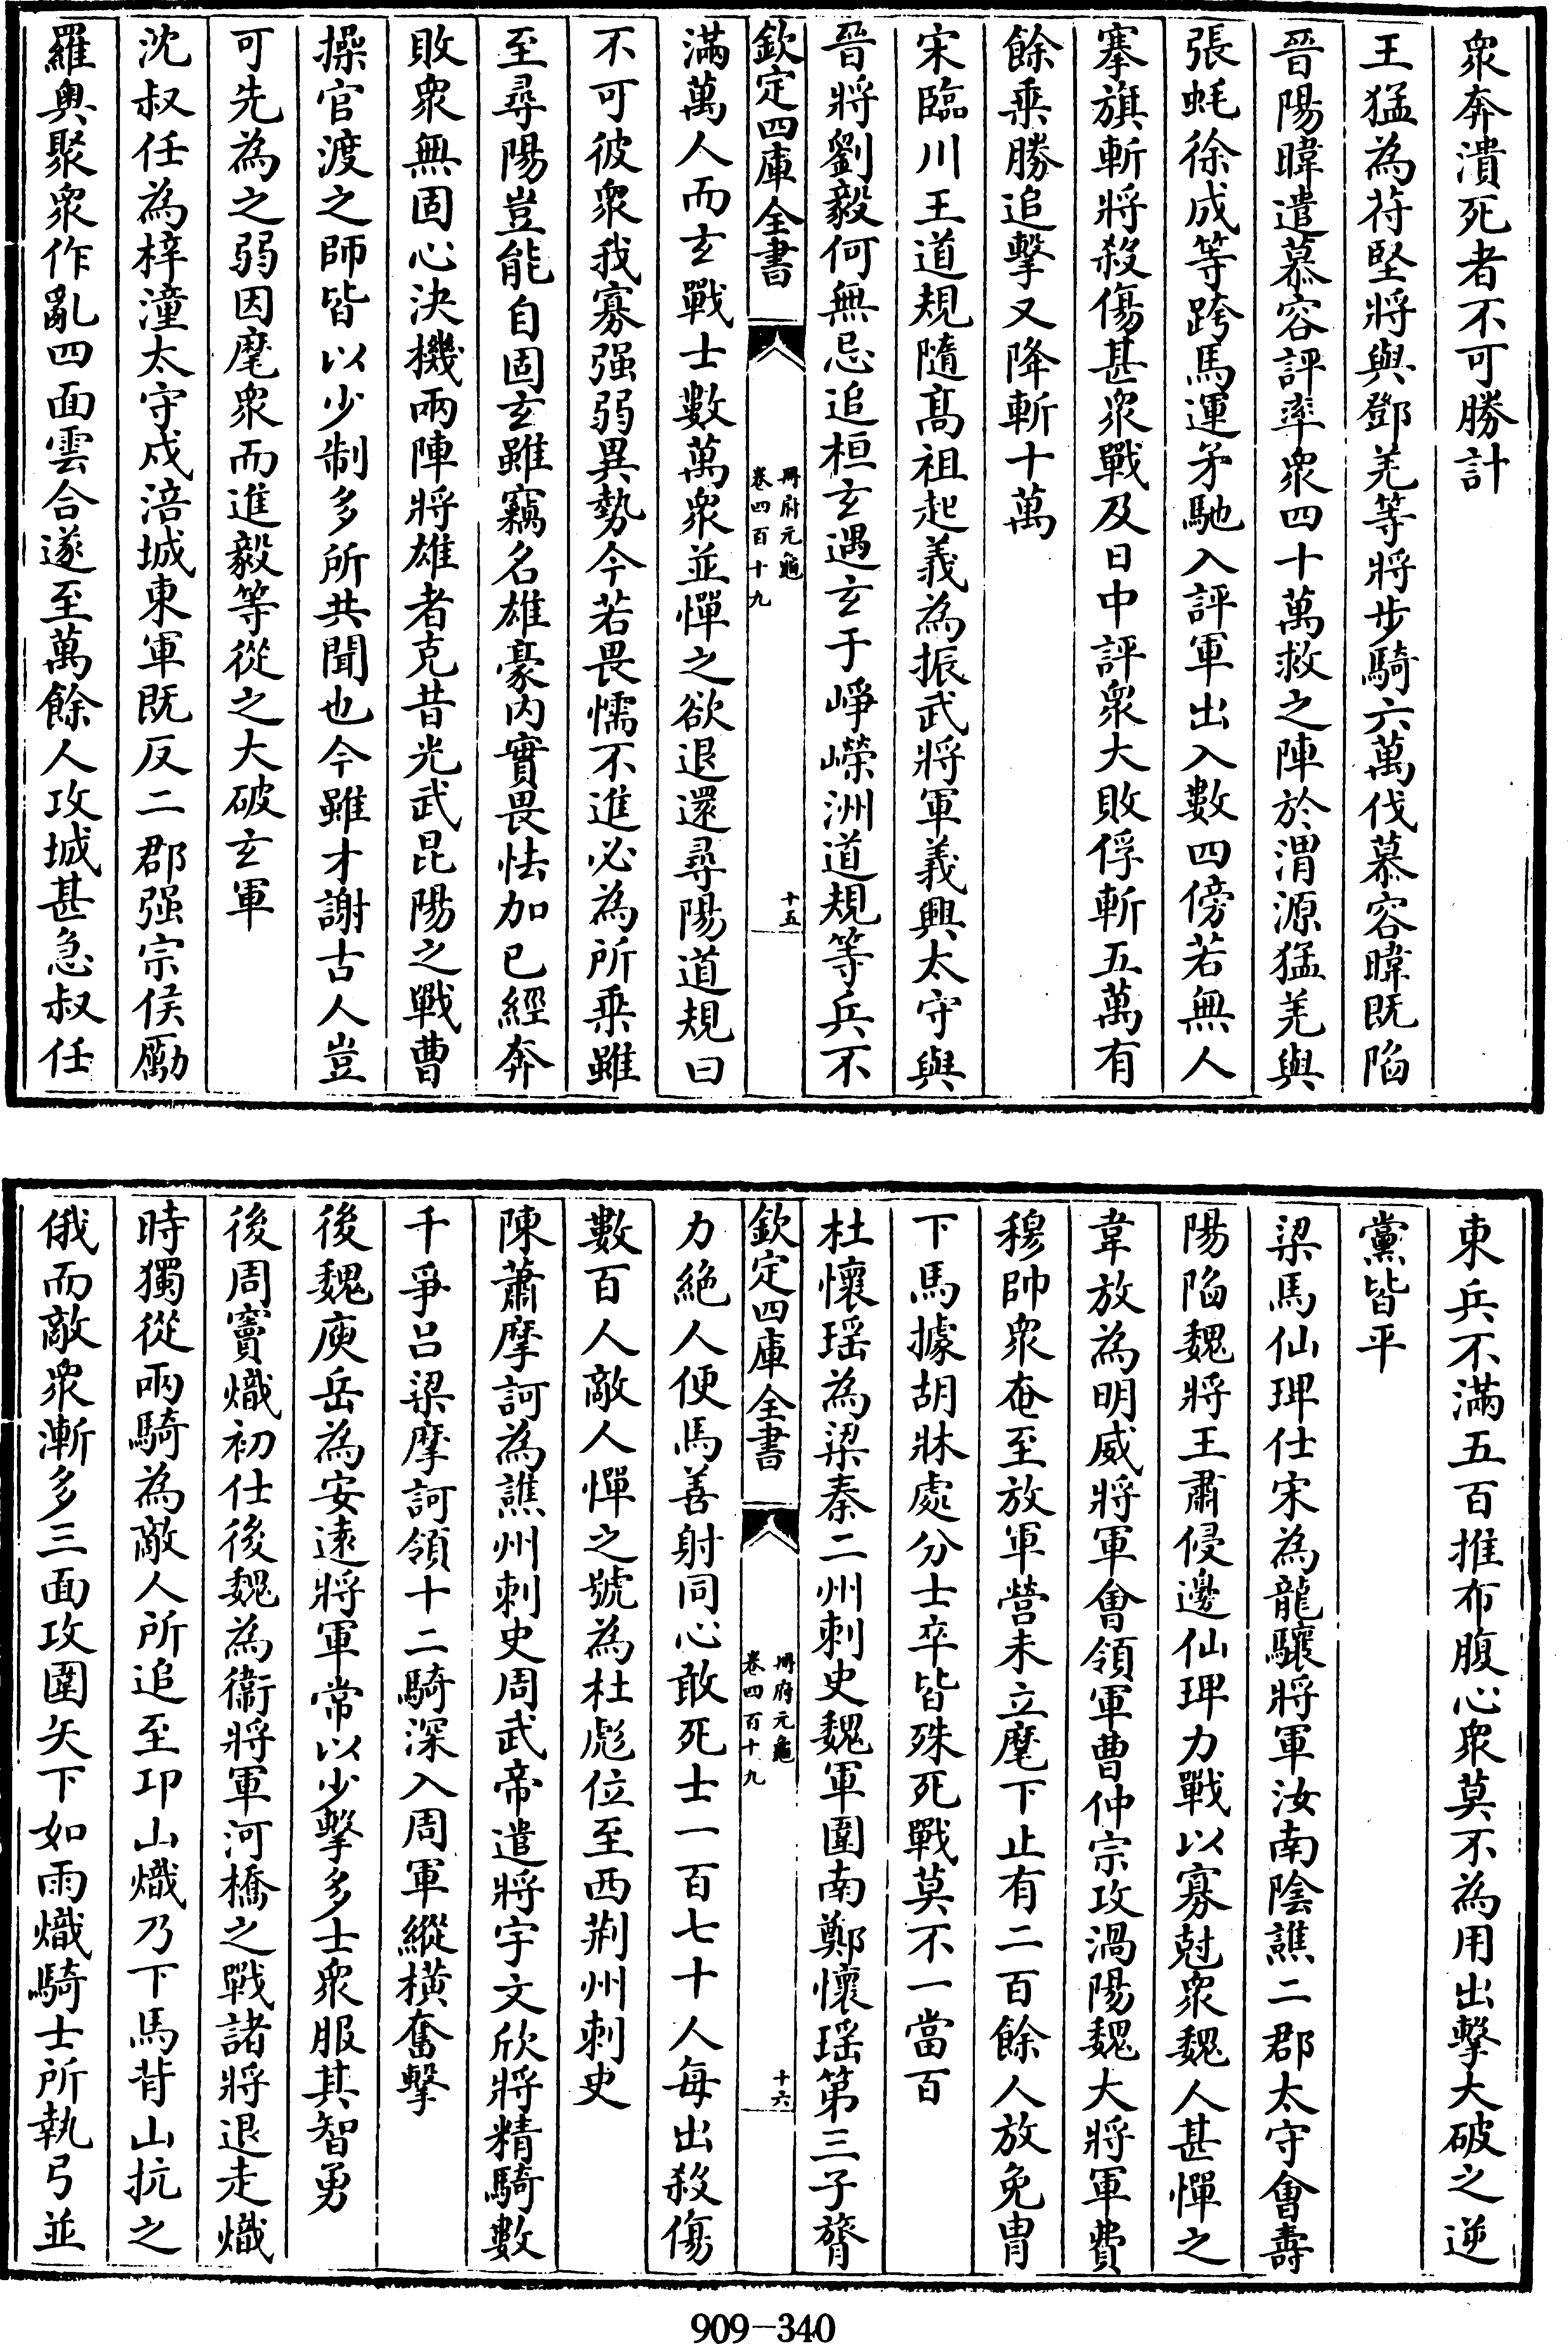 衆奔潰死者不可勝計
王猛為苻堅將與鄧羌等將步騎六萬伐慕容暐既陷
晉陽暐遣慕容評率衆四十萬救之陣於渭源猛羌與
張蚝徐成等跨馬運矛馳入評軍出入數四傍若無人
搴旗斬將殺傷甚衆戰及日中評衆大敗俘斬五萬有
餘乘勝追擊又降斬十萬
宋臨川王道規隨髙祖起義為振武將軍義興太守與
晉將劉毅何無忌追桓玄遇玄于崢嶸洲道規等兵不
欽定四庫全書
冊府元龜
卷四百十九
十五
滿萬人而玄戰士數萬衆並憚之欲退還尋陽道規曰
不可彼衆我寡强弱異勢今若畏懦不進必為所乘雖
至尋陽豈能自固玄雖竊名雄豪内實畏怯加已經奔
敗衆無固心決機兩陣將雄者克昔光武昆陽之戰曹
操官渡之師皆以少制多所共聞也今雖才謝古人豈
可先為之弱因麾衆而進毅等從之大破玄軍
沈叔任為梓潼太守戍涪城東軍既反二郡强宗侯勵
羅奥聚衆作亂四面雲合遂至萬餘人攻城甚急叔任
東兵不滿五百推布腹心衆莫不為用出擊大破之逆
黨皆平
梁馬仙琕仕宋為龍驤將軍汝南隂譙二郡太守會壽
陽陷魏將王肅侵邊仙琕力戰以寡尅衆魏人甚憚之
韋放為明威將軍會領軍曹仲宗攻渦陽魏大將軍費
穆帥衆奄至放軍營未立麾下止有二百餘人放免胄
下馬據胡牀處分士卒皆殊死戰莫不一當百
杜懷瑶為梁秦二州刺史魏軍圍南鄭懷瑶第三子嶷膂
欽定四庫全書
冊府元龜
卷四百十九
十六
力絶人便馬善射同心敢死士一百七十人每出殺傷
數百人敵人憚之號為杜彪位至西荆州刺史
陳蕭摩訶為譙州刺史周武帝遣將宇文欣將精騎數
千爭吕梁摩訶領十二騎深入周軍縱横奮擊
後魏庾岳為安逺將軍常以少擊多士衆服其智勇
後周竇熾初仕後魏為衞將軍河橋之戰諸將退走熾
時獨從兩騎為敵人所追至邙山熾乃下馬背山抗之
俄而敵衆漸多三面攻圍矢下如雨熾騎士所執弓並
909-340